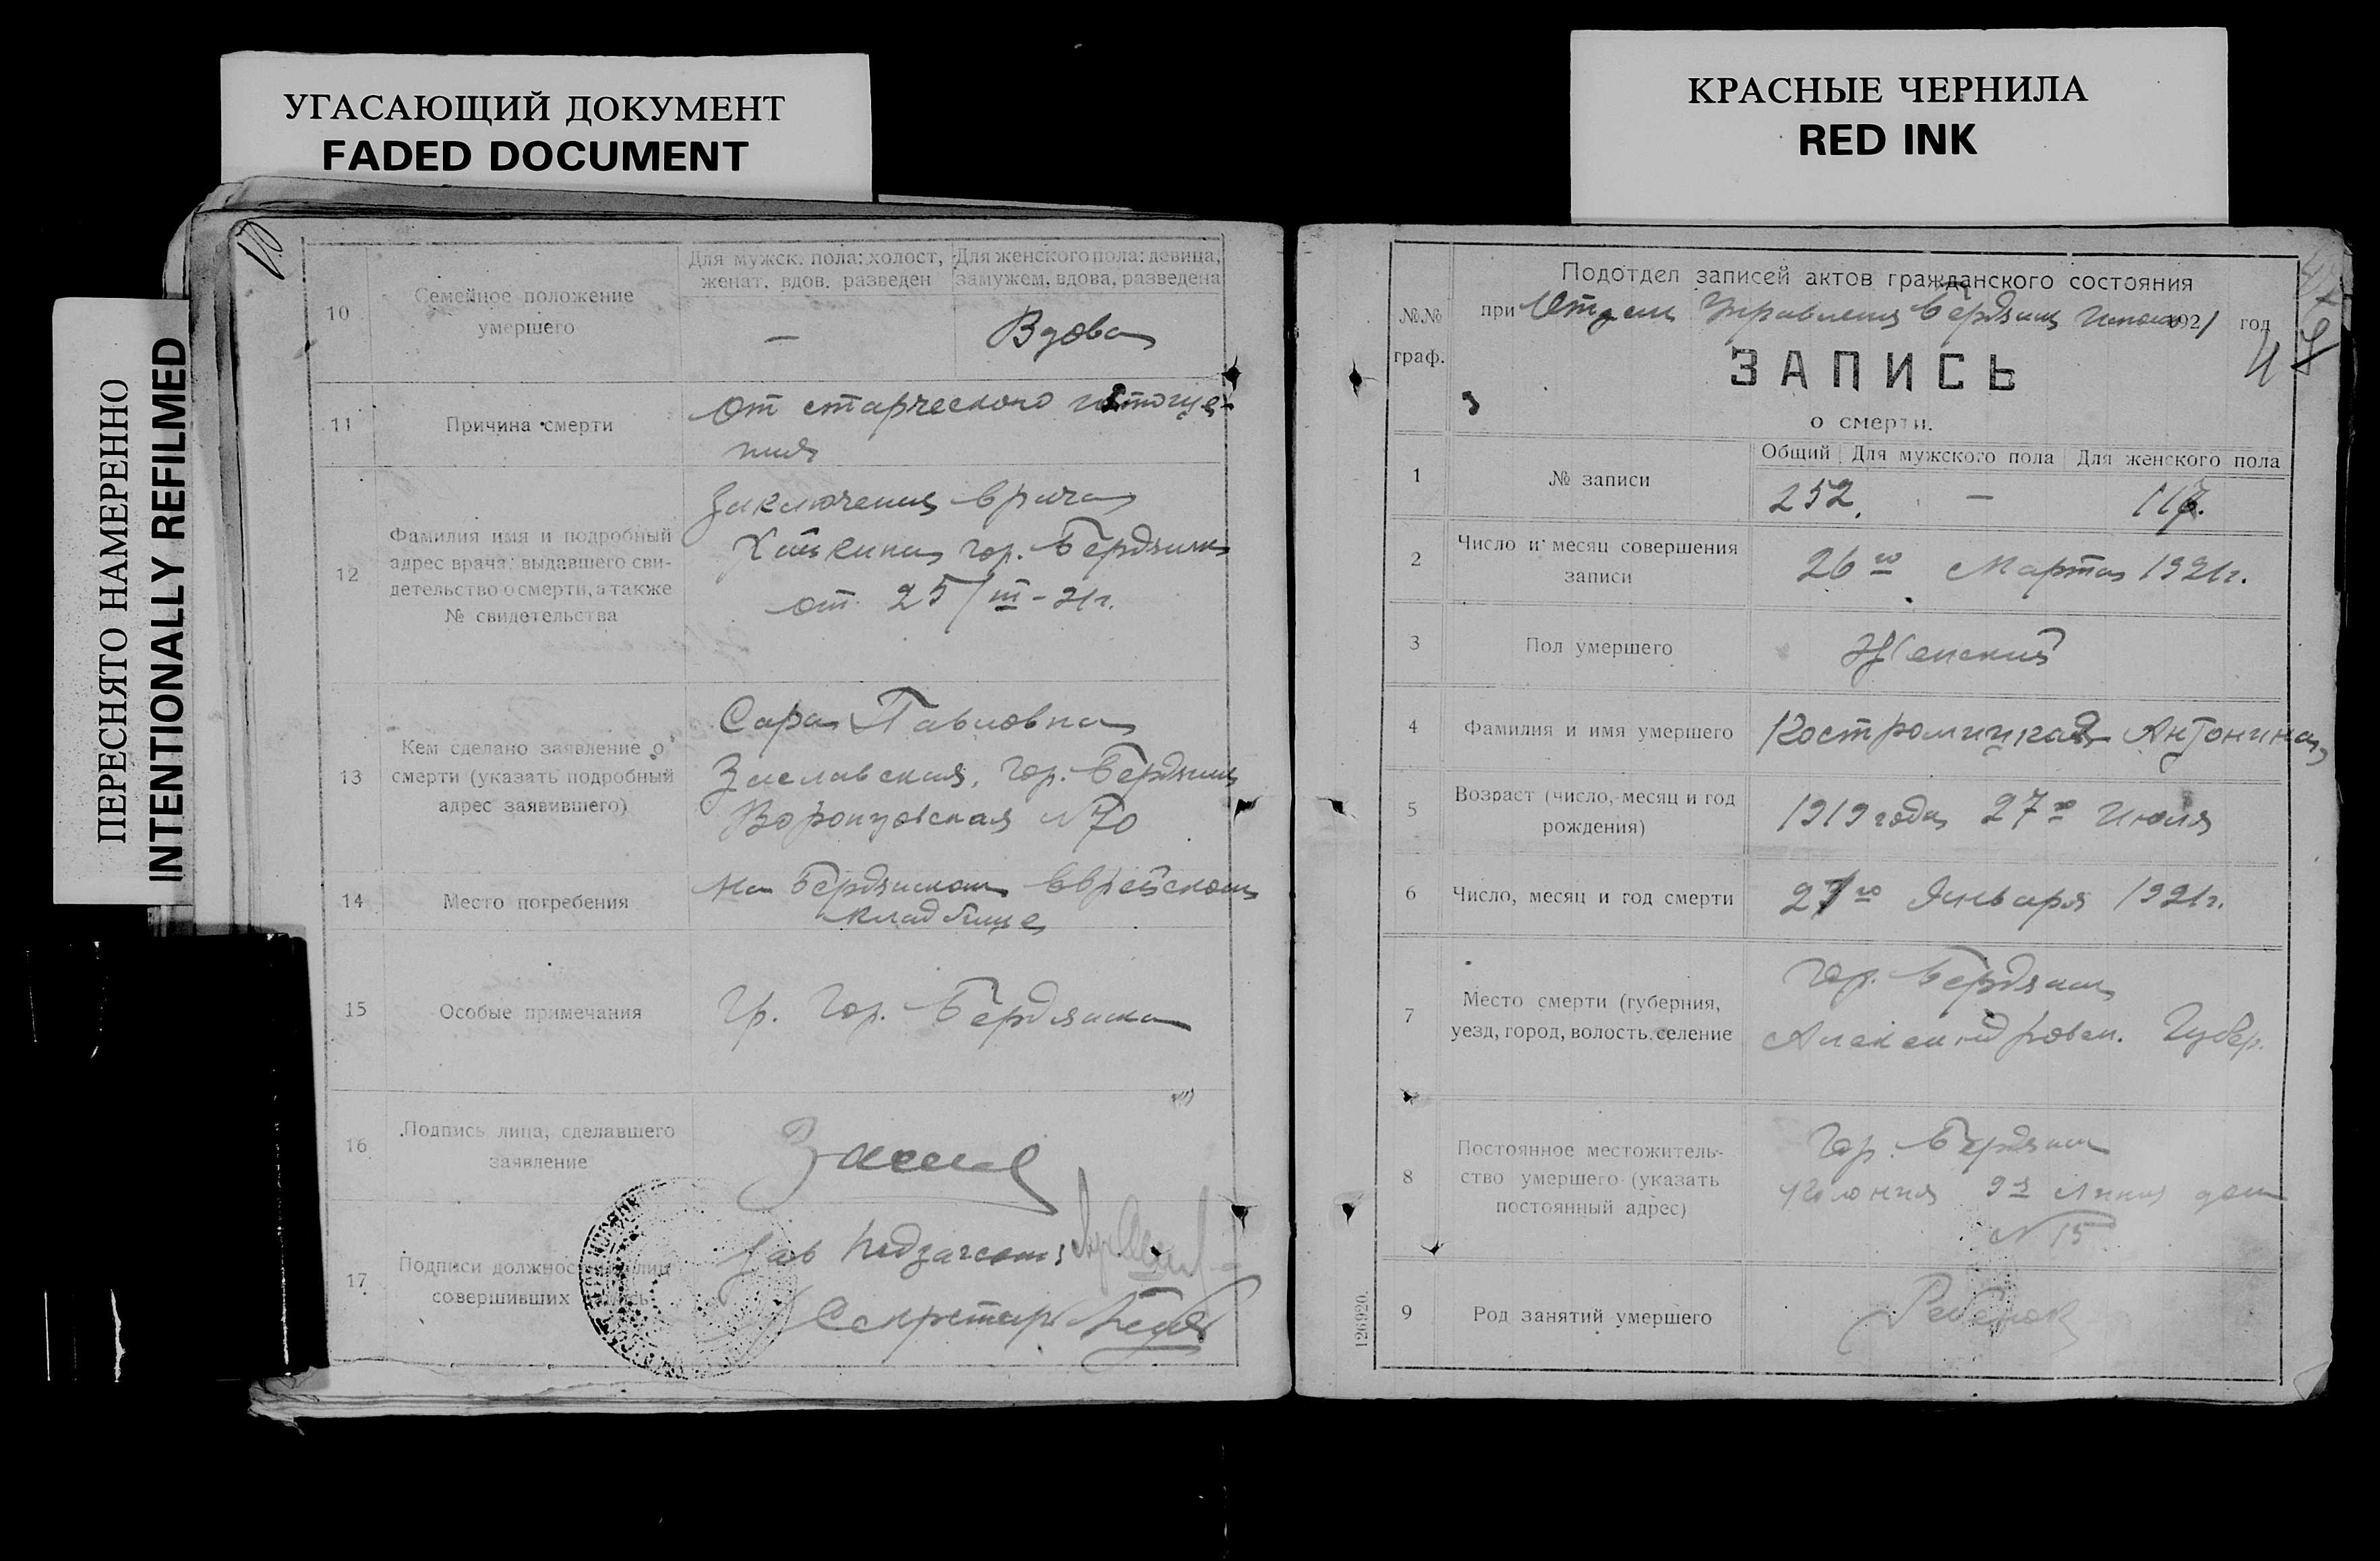 УГАСАЮЩИЙ ДОКУМЕНТ
FADED DOCUMENT
КРАСНЫЕ ЧЕРНИЛА
RED INK
ПЕРЕСНЯТО НАМЕРЕННО
INTENTIONALLY REFILMED
10
Семейное положение
умершего
Для мужск. пола: холост,
женат, вдов, разведен
—
Для женского пола: девица,
замужем, вдова, разведена
Вдова
11
Причина смерти
От старческого истоще-
ния
12
Фамилия имя и подробный
адрес врача, выдавшего сви-
детельство о смерти, а также
№ свидетельства
Заключение врача
гор. Бердянск
от 25/III-21г.
13
Кем сделано заявление о
смерти (указать подробный
адрес заявившего)
Сара Павловна
Заславская, гор. Бердянск
Воронцовская №70
14
Место погребения
На Бердянском Еврейском
кладбище
15
Особые примечания
Гр. Гор. Бердянска
16
Подпись лица, сделавшего
заявление
17
Подписи должностных лиц
совершивших запись
Зав
Секретарь
№№
граф.
Подотдел записей актов гражданского состояния
при Отделе Управления Бердянск 1921 год
ЗАПИСЬ
о смерти.
1
№ записи
Общий
Для мужского пола
Для женского пола
252.
—
2
Число и месяц совершения
записи
26го Марта 1921г.
3
Пол умершего
Женский
4
Фамилия и имя умершего
Костромицкая Антонина
5
Возраст (число, месяц и год
рождения)
1919 года 27го Июля
6
Число, месяц и год смерти
27го Января 1921г.
7
Место смерти (губерния,
уезд, город, волость, селение
Гор. Бердянск
Александровск. Губер.
8
Постоянное местожитель-
ство умершего (указать
постоянный адрес)
Гор. Бердянск
Колония 9я линия дом
№ 15
9
Род занятий умершего
Ребенок
126920.